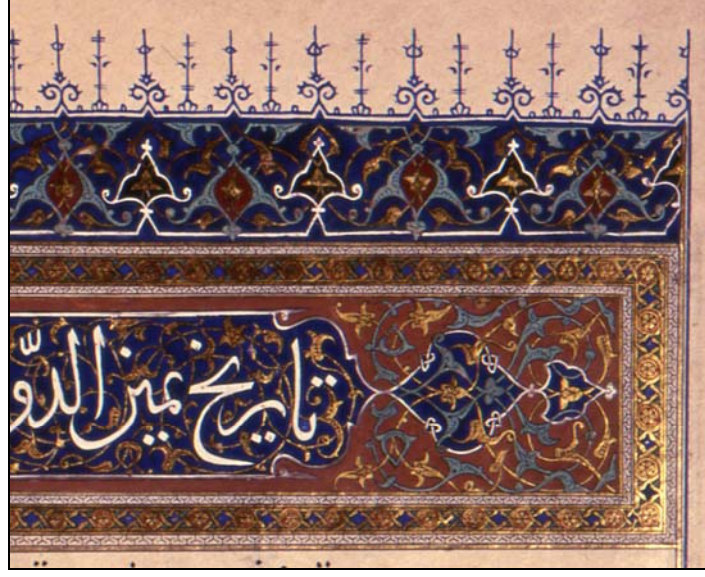 تاريخ يمين الدّو